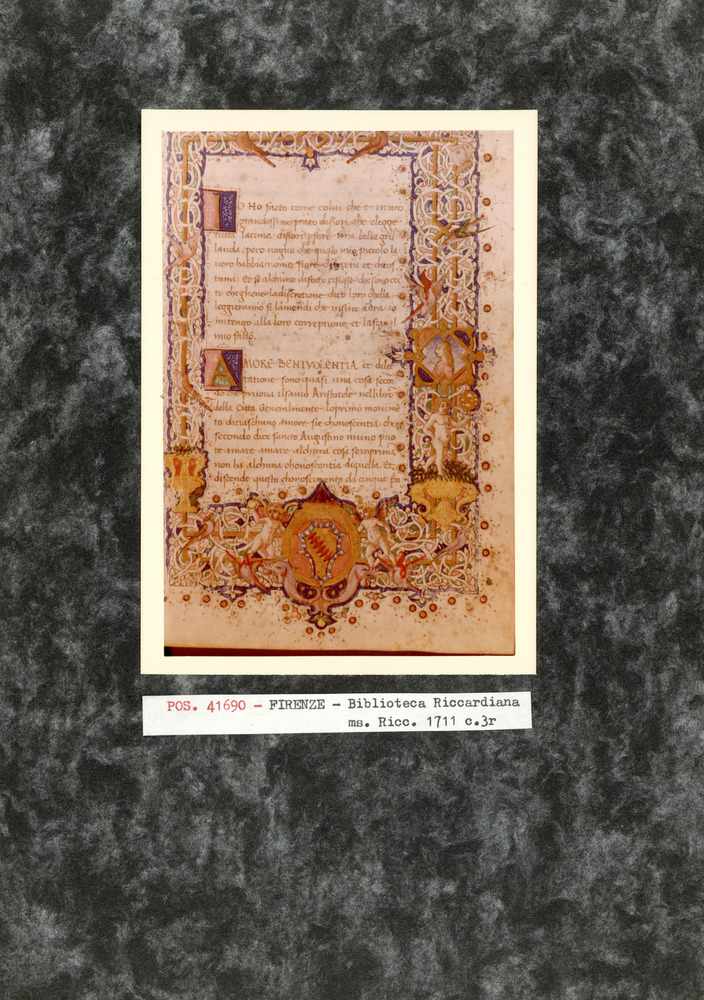 IO Ho facto come colui che e in uno
grandissimo prato di fiori che elegge
tutta la cima di fiori per fare una bella gril
landa pero voglio che questo mio piccolo la
voro habbia nome fiore di virtu et di cos
tumi et se alchuno
to che gli
leggieranno si l'amendi che
mi tengo alla loro correptione et
mio fallo.
AMORE BENIVOLENTIA et dile
tatione sono quasi una cosa seco
do che pruova il savio Aristotele nel libro
della citta Generalmente lo primo movime
to di ciaschuno Amore sie chonoscentia che
secondo dice sancto Augustino niuno puo
te amare alchuna cosa se in prima
non ha alchuna chonoscentia di quella et
discende questo chonoscimento da cinque
POS. 41690 - FIRENZE - Biblioteca Riccardiana
ms. Ricc. 1711 c.3r